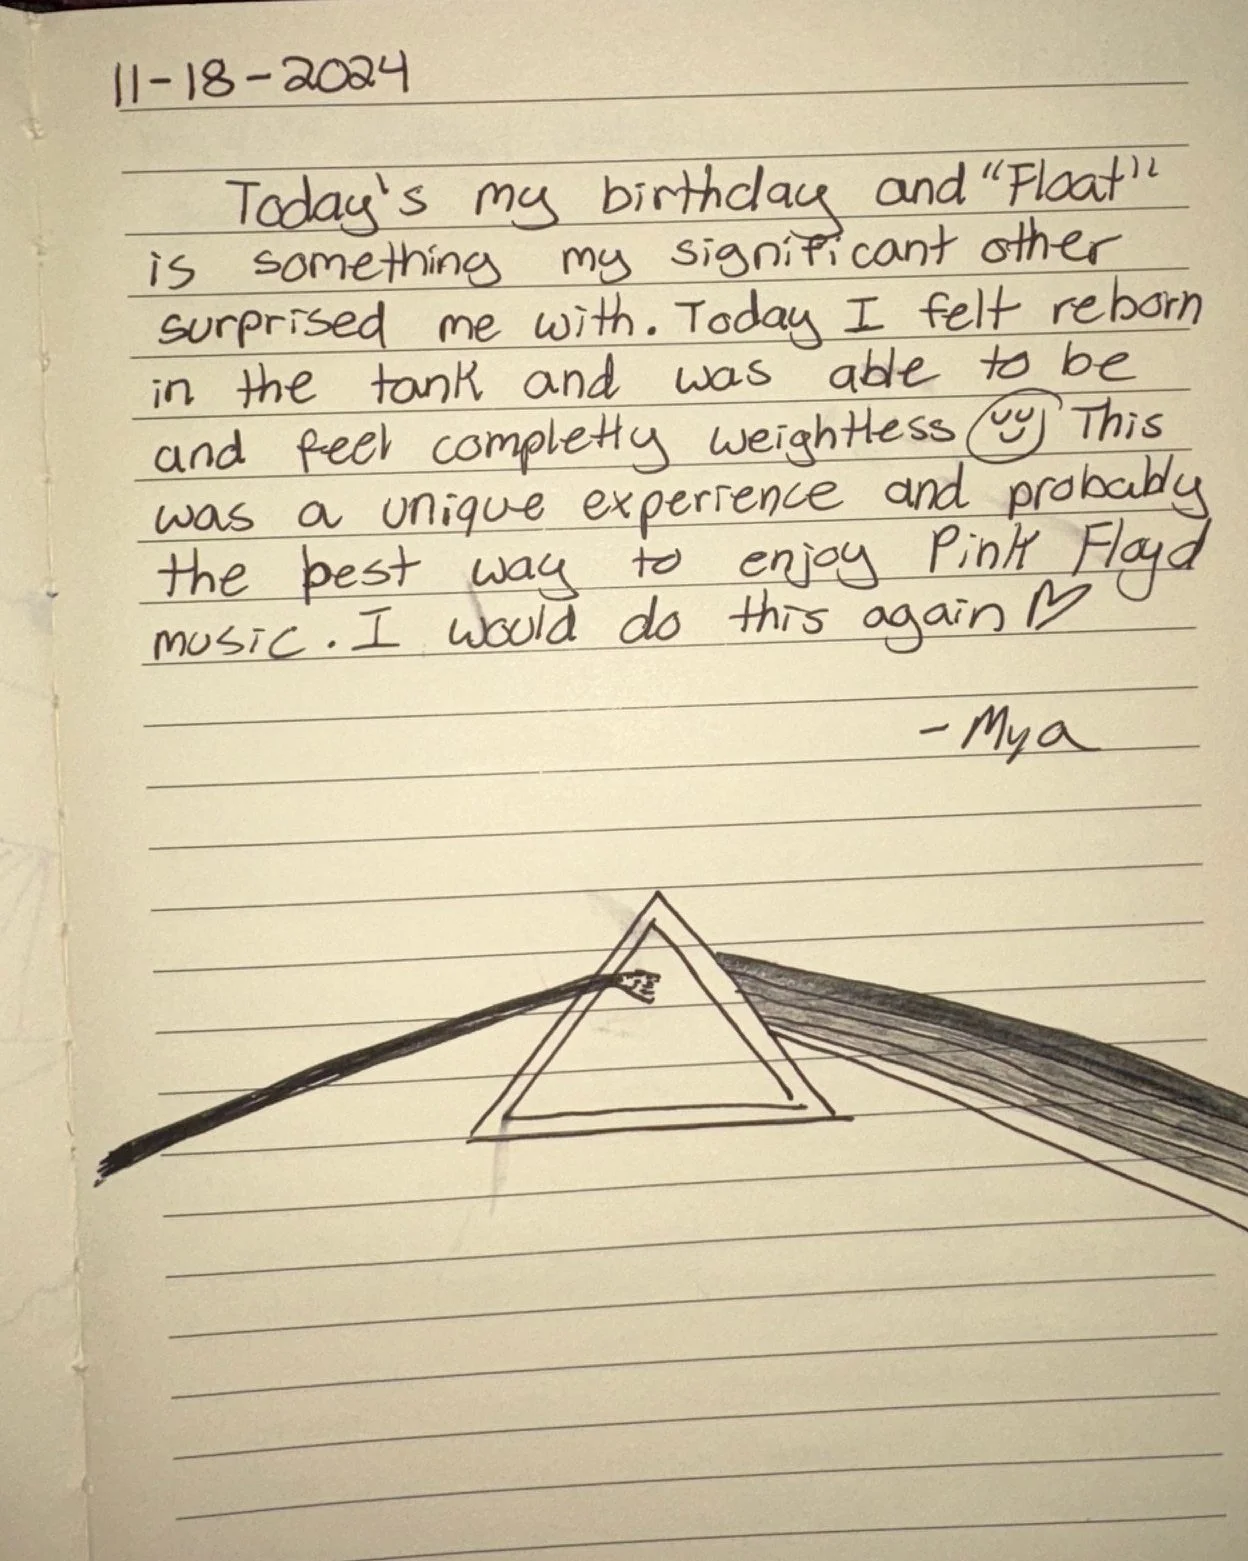 11-18-2024
Today's my birthday and "Float"
is something my significant other
surprised me with. Today I felt reborn
in the tank and was able to be
and feel completly weightless This
was a unique experience and probably
the best way to enjoy Pink Floyd
music. I would do this again
- Mya